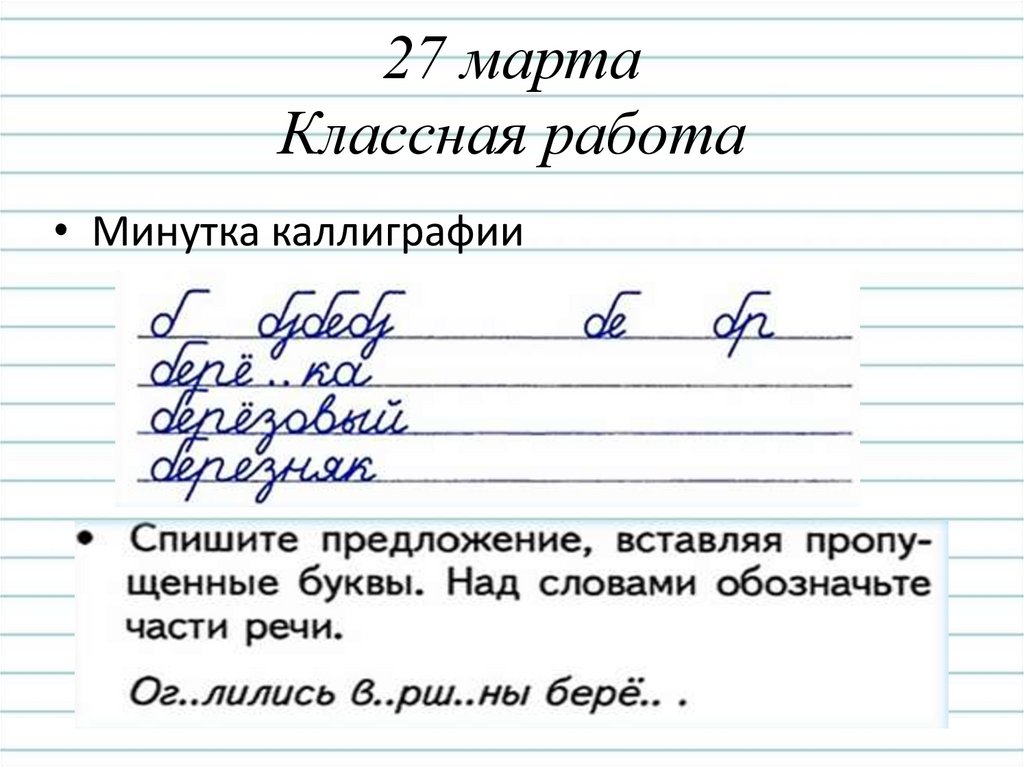 27 марта
Классная работа
• Минутка каллиграфии
б бзбебз бе бр
берё..ка
берёзовый
березняк
• Спишите предложение, вставляя пропу-
щенные буквы. Над словами обозначьте
части речи.
Ог..лились в..рш..ны берё.. .